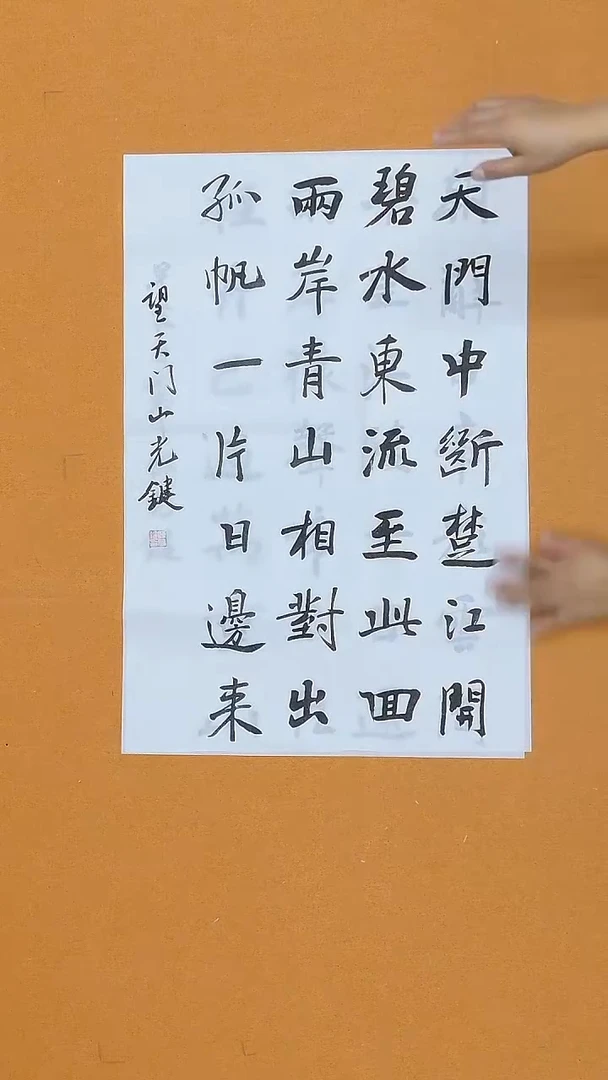 天門中斷楚江開
碧水東流至此回
兩岸青山相對出
孤帆一片日邊来
望天门山光鍵